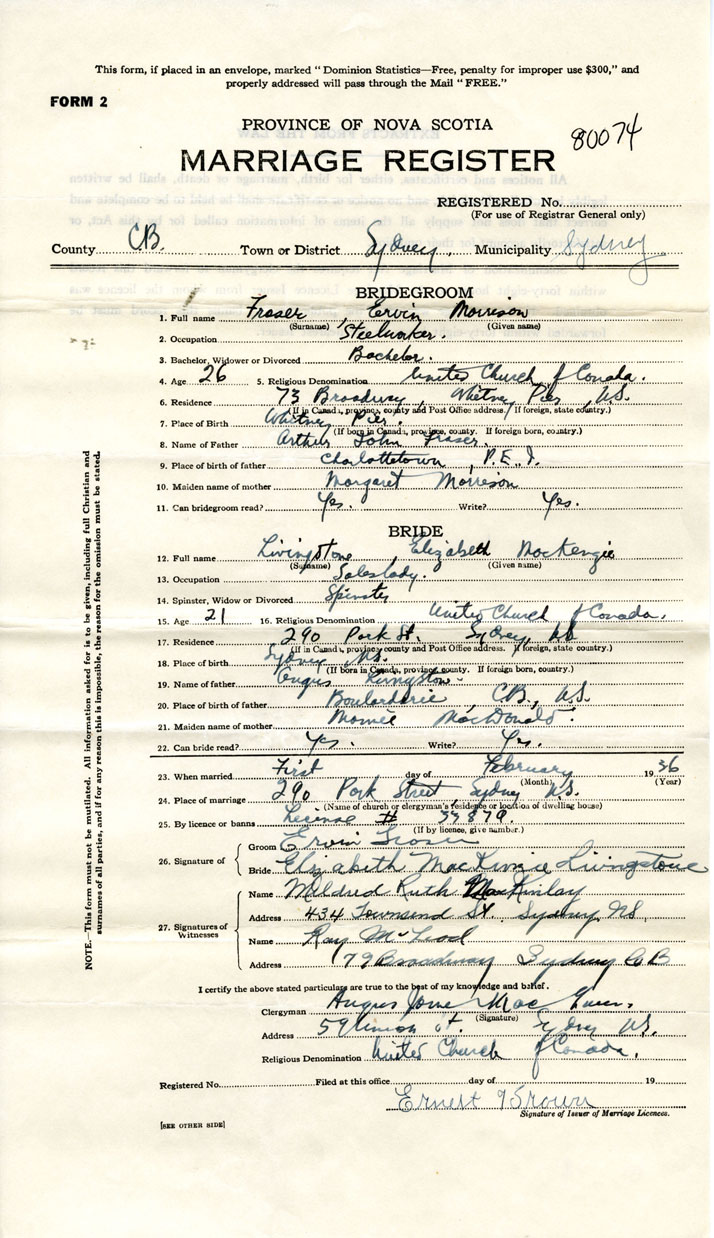 This form, if placed in an envelope, marked "Dominion Statistics—Free, penalty for improper use $300," and
properly addressed will pass through the Mail "FREE."
FORM 2
PROVINCE OF NOVA SCOTIA
80074
MARRIAGE REGISTER
REGISTERED No.
(For use of Registrar General only)
County C.B. Town or District Sydney. Municipality Sydney
BRIDEGROOM
1. Full name Fraser, Ervin Morrison
(Surname) (Given name)
2. Occupation Steelworker.
3. Bachelor, Widower or Divorced Bachelor.
4. Age 26 5. Religious Denomination United Church of Canada.
6. Residence 73 Broadway, Whitney Pier, N.S.
(If in Canada, province, county and Post Office address. If foreign, state country.)
7. Place of Birth Whitney Pier.
(If born in Canada, province, county. If foreign born, country.)
8. Name of Father Arthur John Fraser.
9. Place of birth of father Charlottetown, P.E.I.
10. Maiden name of mother Margaret Morrison
11. Can bridegroom read? Yes. Write? Yes.
BRIDE
12. Full name Livingstone, Elizabeth MacKenzie
(Surname) (Given name)
13. Occupation Saleslady.
14. Spinster, Widow or Divorced Spinster
15. Age 21 16. Religious Denomination United Church of Canada.
17. Residence 290 Park St. Sydney, N.S
(If in Canada, province, county and Post Office address. If foreign, state country.)
18. Place of birth Sydney N.S.
(If born in Canada, province, county. If foreign born, country.)
19. Name of father Angus Livingstone.
20. Place of birth of father Boularderie, C.B., N.S.
21. Maiden name of mother MacDonald.
22. Can bride read? Yes. Write? Yes.
23. When married First day of February 1936
(Month) (Year)
24. Place of marriage 290 Park Street, Sydney N.S.
(Name of church or clergyman's residence or location of dwelling house)
25. By licence or banns License #
(If by licence, give number.)
26. Signature of Groom Ervin Fraser
Bride Elizabeth MacKenzie Livingstone
27. Signatures of Witnesses
Name Mildred Ruth MacKinlay
Address 434 Townsend St. Sydney N.S.
Name Ray McLeod
Address 179 Broadway Sydney C B
I certify the above stated particulars are true to the best of my knowledge and belief.
Clergyman Angus Mac
(Signature)
Address 59 Union St. Sydney N.S.
Religious Denomination United Church of Canada.
Registered No. Filed at this office day of 19
Ernest Brown
Signature of Issuer of Marriage Licences.
[SEE OTHER SIDE]
NOTE.—This form must not be mutilated. All information asked for is to be given, including full Christian and
surnames of all parties, and if for any reason this is impossible, the reason for the omission must be stated.